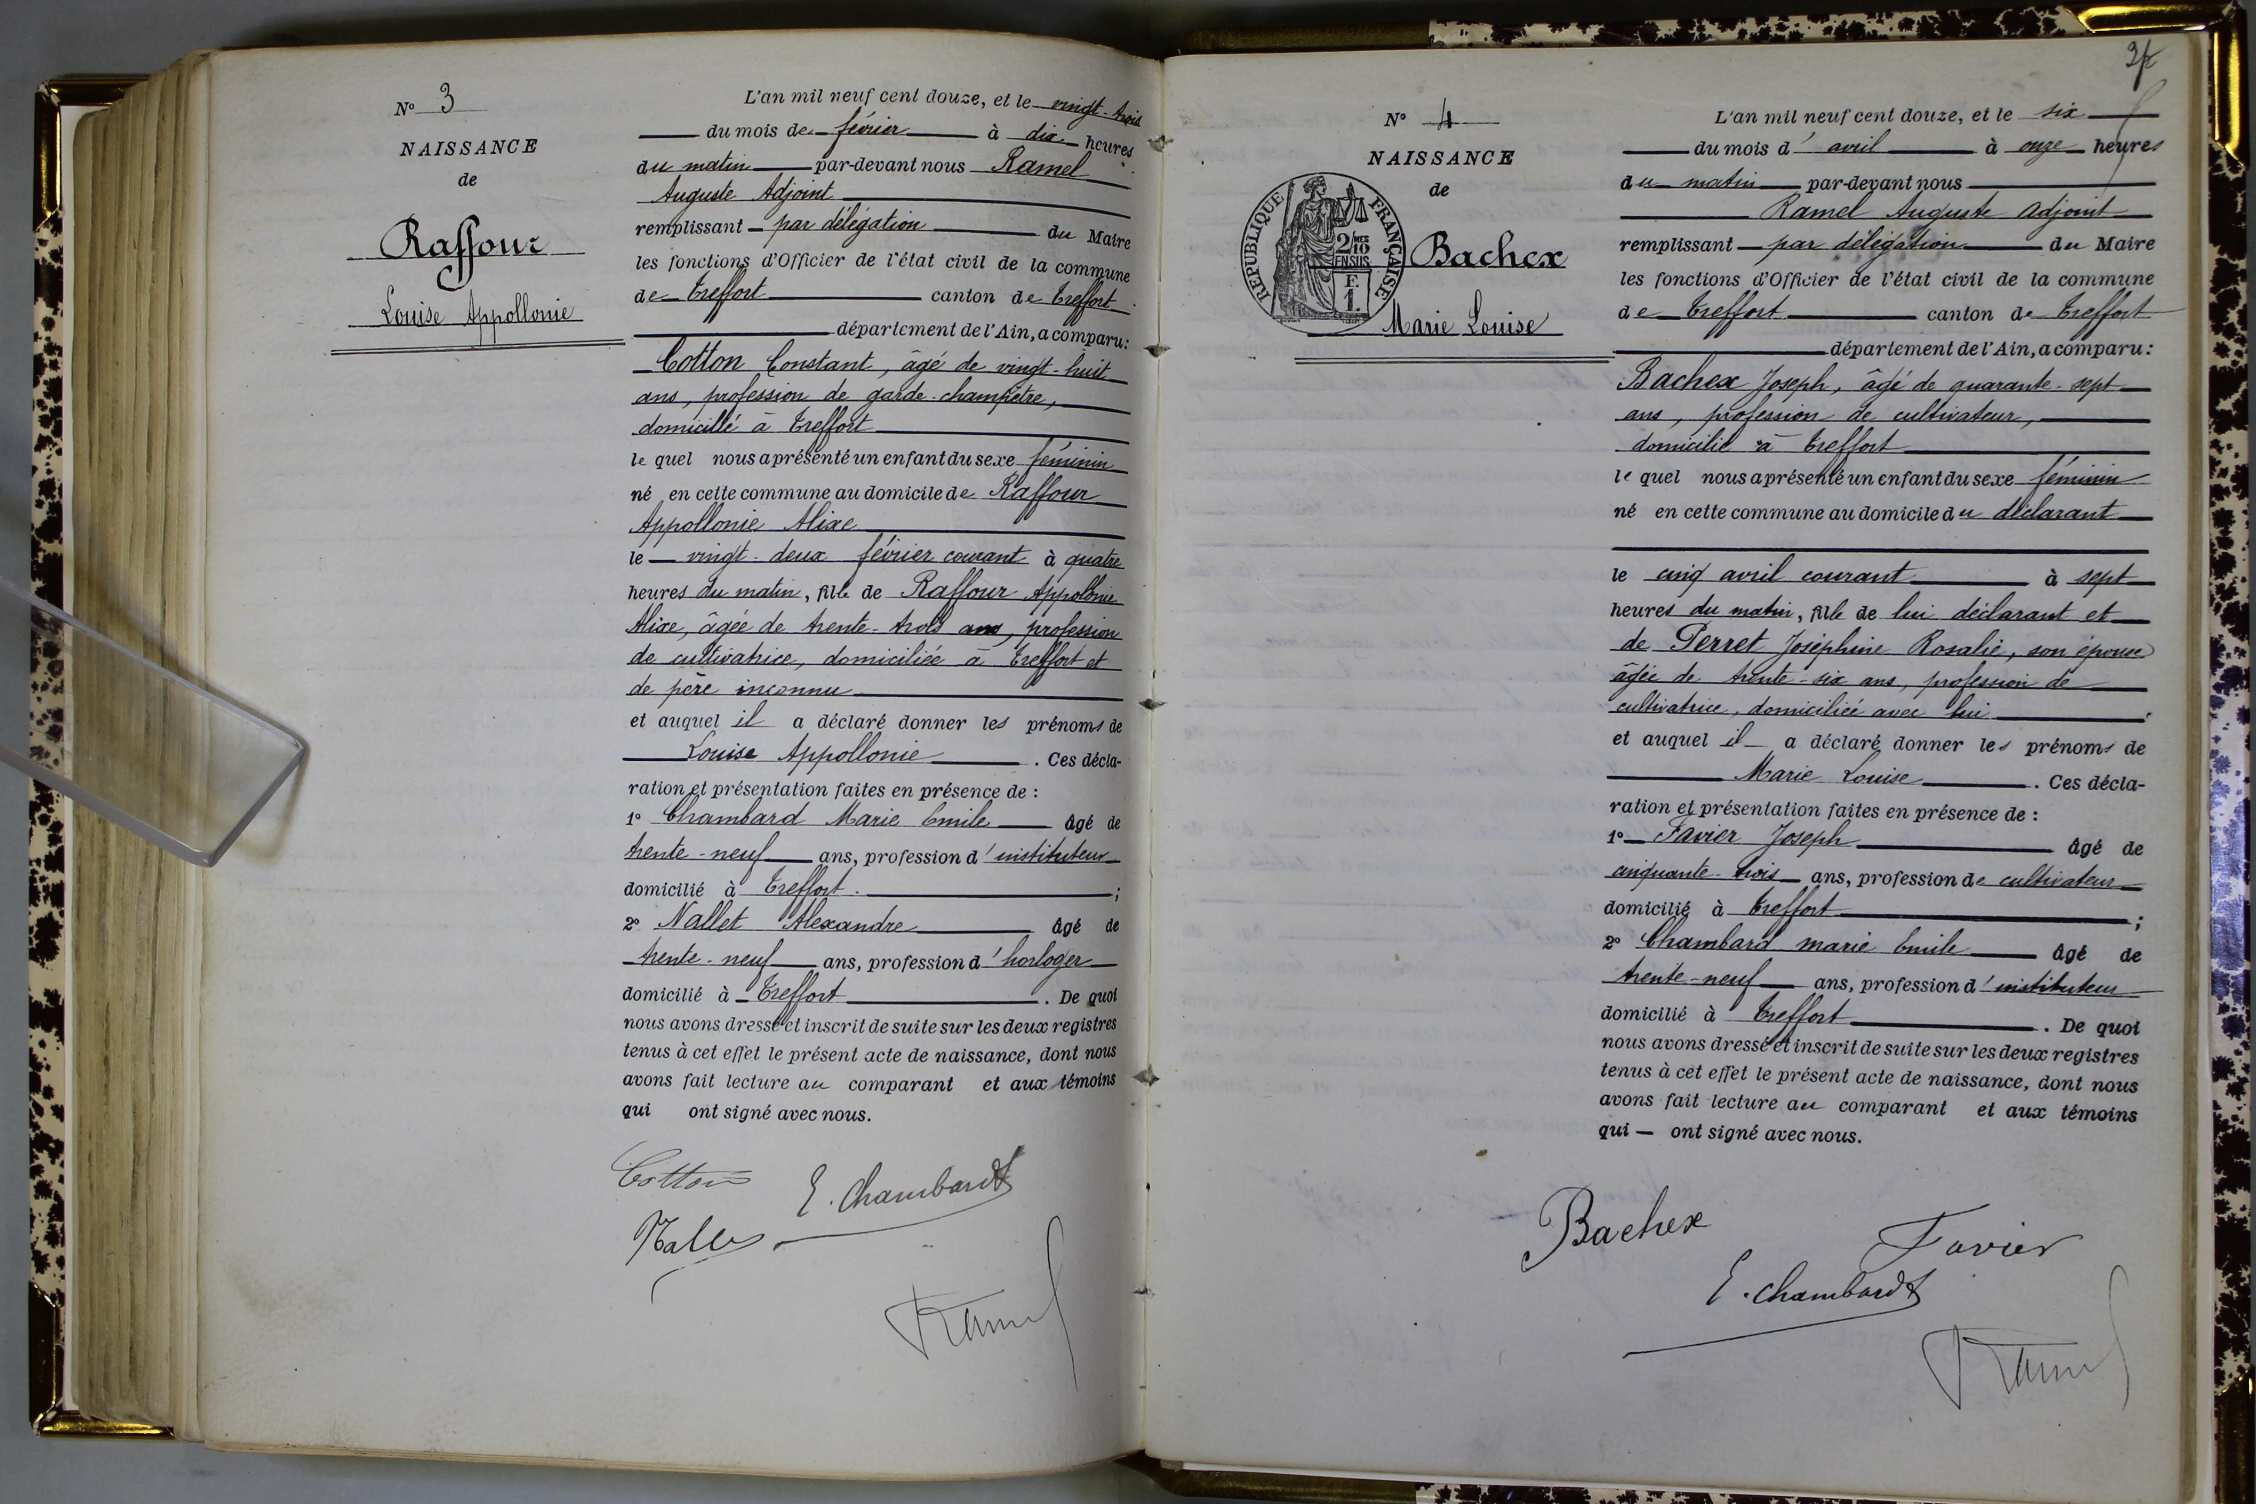 N° 3
NAISSANCE
de
Raffour
Louise Appollonie
L'an mil neuf cent douze, et le vingt-trois
du mois de février à dix heures
du matin par-devant nous Ramel
Auguste Adjoint
remplissant par délégation du Maire
les fonctions d'Officier de l'état civil de la commune
de Treffort canton de Treffort
département de l'Ain, a comparu:
Cotton Constant, âgé de vingt-huit
ans, profession de garde-champêtre,
domicilié à Treffort
le quel nous a présenté un enfant du sexe féminin
né en cette commune au domicile de Raffour
Appollonie Alixe
le vingt-deux février courant à quatre
heures du matin, fille de Raffour Appollonie
Alixe, âgée de trente-trois ans, profession
de cultivatrice, domiciliée à Treffort et
de père inconnu
et auquel il a déclaré donner les prénoms de
Louise Appollonie. Ces décla-
ration et présentation faites en présence de :
1° Chambard Marie Emile âgé de
trente-neuf ans, profession d'instituteur
domicilié à Treffort. ;
2° Nallet Alexandre âgé de
trente-neuf ans, profession d'horloger
domicilié à Treffort. De quoi
nous avons dressé et inscrit de suite sur les deux registres
tenus à cet effet le présent acte de naissance, dont nous
avons fait lecture au comparant et aux témoins
qui ont signé avec nous.
Cotton
E. Chambard
Nallet
Ramel
N° 4
NAISSANCE
de
RÉPUBLIQUE FRANÇAISE
2/10 MES
EN SUS
F.
1.
Bachex
Marie Louise
L'an mil neuf cent douze, et le six
du mois d'avril à onze heures
du matin par-devant nous
Ramel Auguste adjoint
remplissant par délégation du Maire
les fonctions d'Officier de l'état civil de la commune
de Treffort canton de Treffort
département de l'Ain, a comparu:
Bachex Joseph, âgé de quarante-sept
ans, profession de cultivateur,
domicilié à Treffort
le quel nous a présenté un enfant du sexe féminin
né en cette commune au domicile du déclarant
le cinq avril courant à sept
heures du matin, fille de lui déclarant et
de Perret Joséphine Rosalie, son épouse
âgée de trente-six ans, profession de
cultivatrice, domiciliée avec lui
et auquel il a déclaré donner les prénoms de
Marie Louise. Ces décla-
ration et présentation faites en présence de :
1° Favier Joseph âgé de
cinquante-trois ans, profession de cultivateur
domicilié à Treffort ;
2° Chambard marie Emile âgé de
trente-neuf ans, profession d'instituteur
domicilié à Treffort. De quoi
nous avons dressé et inscrit de suite sur les deux registres
tenus à cet effet le présent acte de naissance, dont nous
avons fait lecture au comparant et aux témoins
qui — ont signé avec nous.
Bachex
Favier
E. Chambard
Ramel